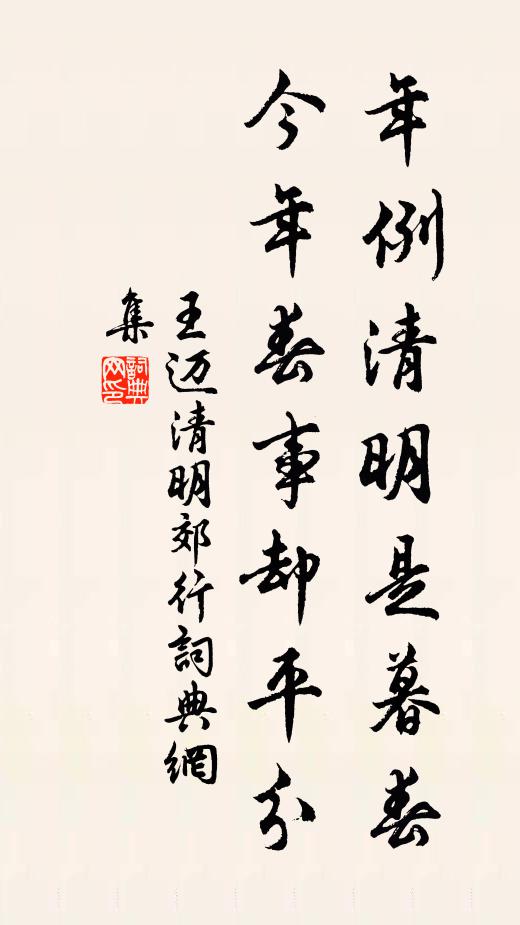 年例清明是暮春
今年春事却平分
王迈清明郊行詞典網
集
詞典
网印